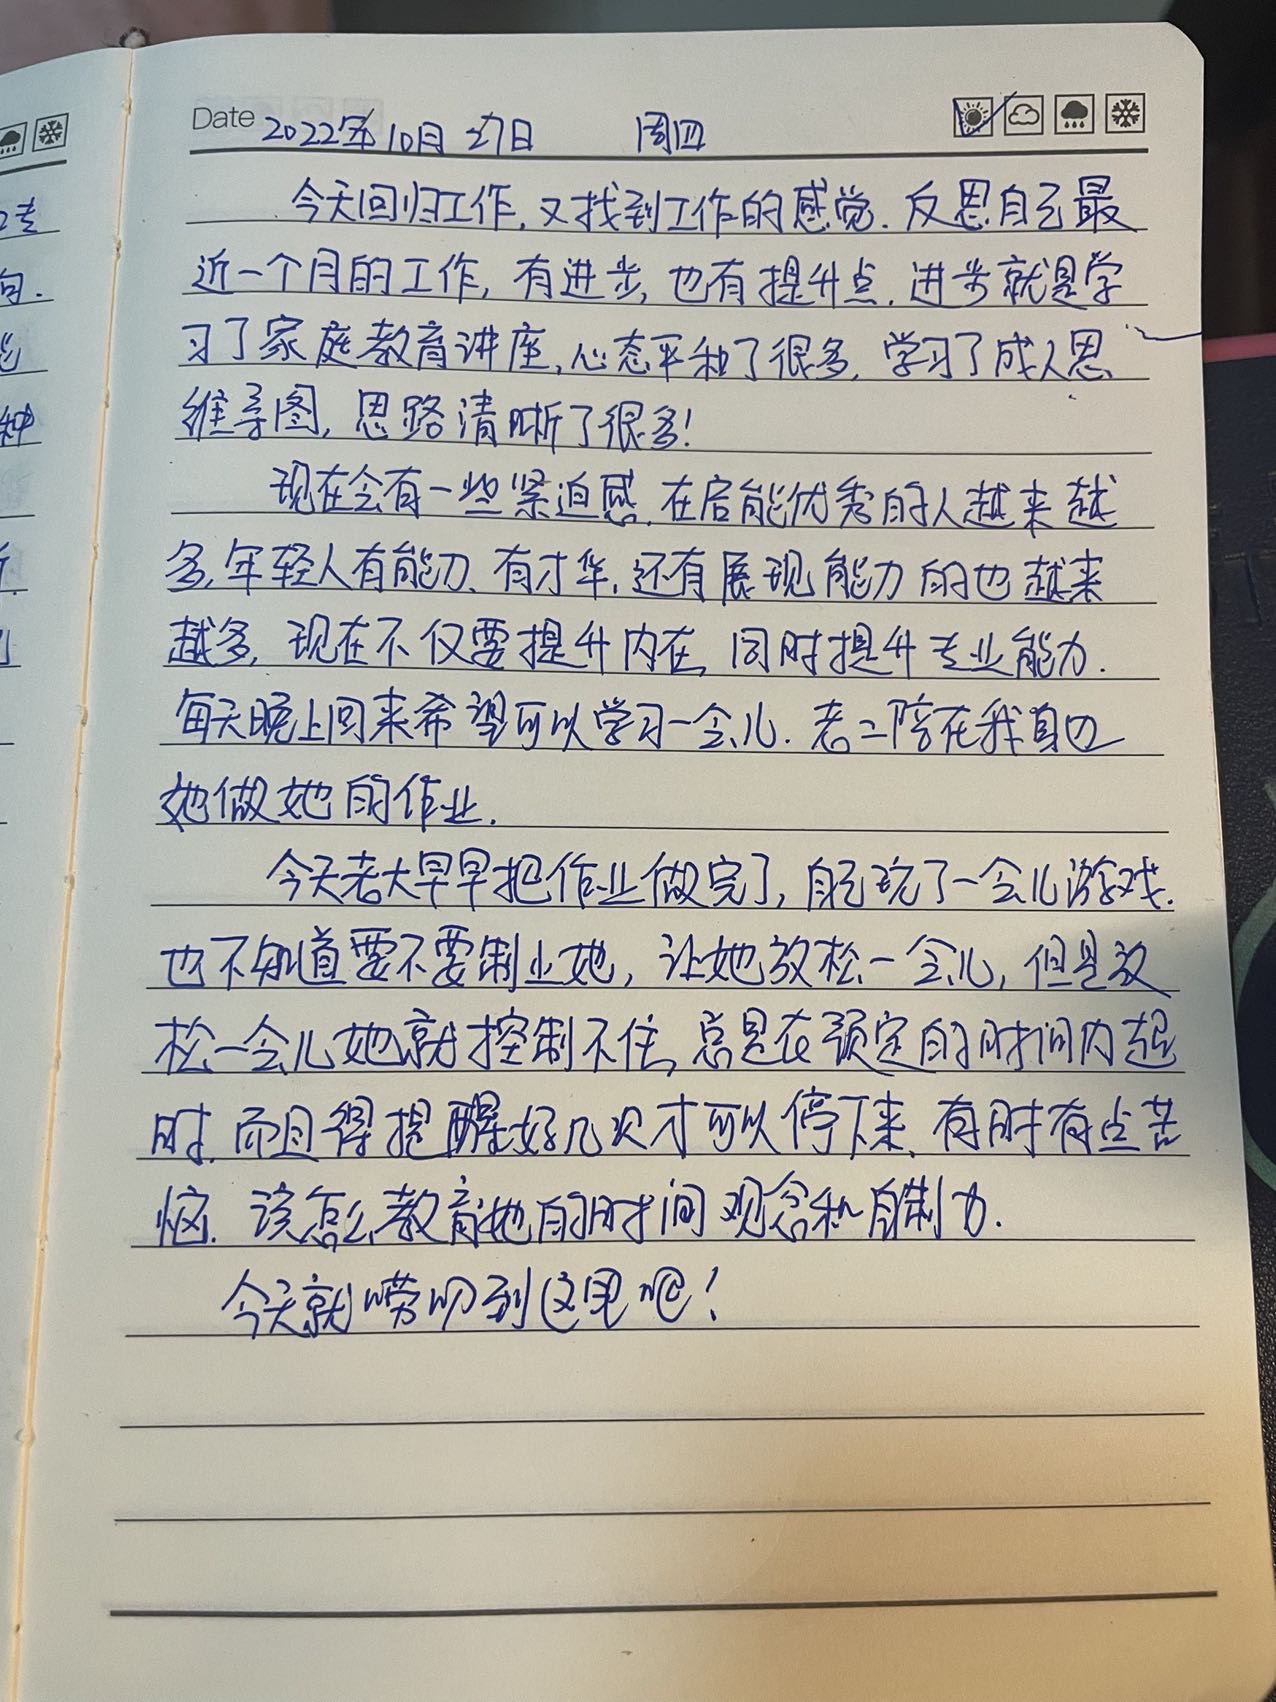 Date 2022年10月27日 周四
今天回归工作,又找到工作的感觉.反思自己最
近一个月的工作,有进步,也有提升点.进步就是学
习了家庭教育讲座,心态平和了很多,学习了成人思
维导图,思路清晰了很多!
现在会有一些紧迫感.在启能优秀的人越来越
多,年轻人有能力、有才华,还有展现能力的也越来
越多,现在不仅要提升内在,同时提升专业能力.
每天晚上回来希望可以学习一会儿.老二陪在我身边
她做她的作业.
今天老大早早把作业做完了,自己玩了一会儿游戏.
也不知道要不要制止她,让她放松一会儿,但是放
松一会儿她就控制不住,总是在预定的时间内超
时.而且得提醒好几次才可以停下来,有时有点苦
恼.该怎么教育她的时间观念和自制力.
今天就唠叨到这里吧!